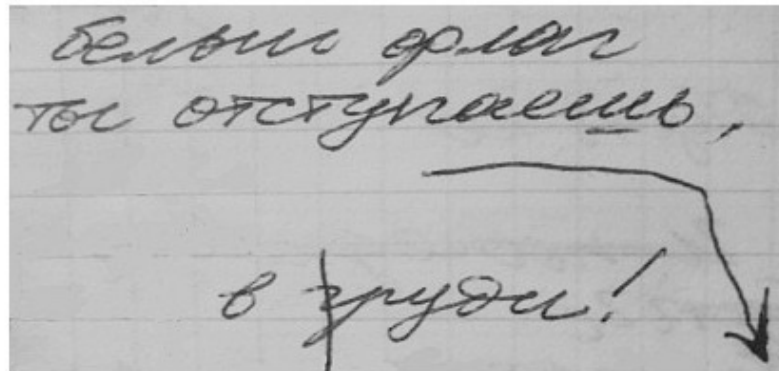 белый флаг
ты отступаешь,
в груди!